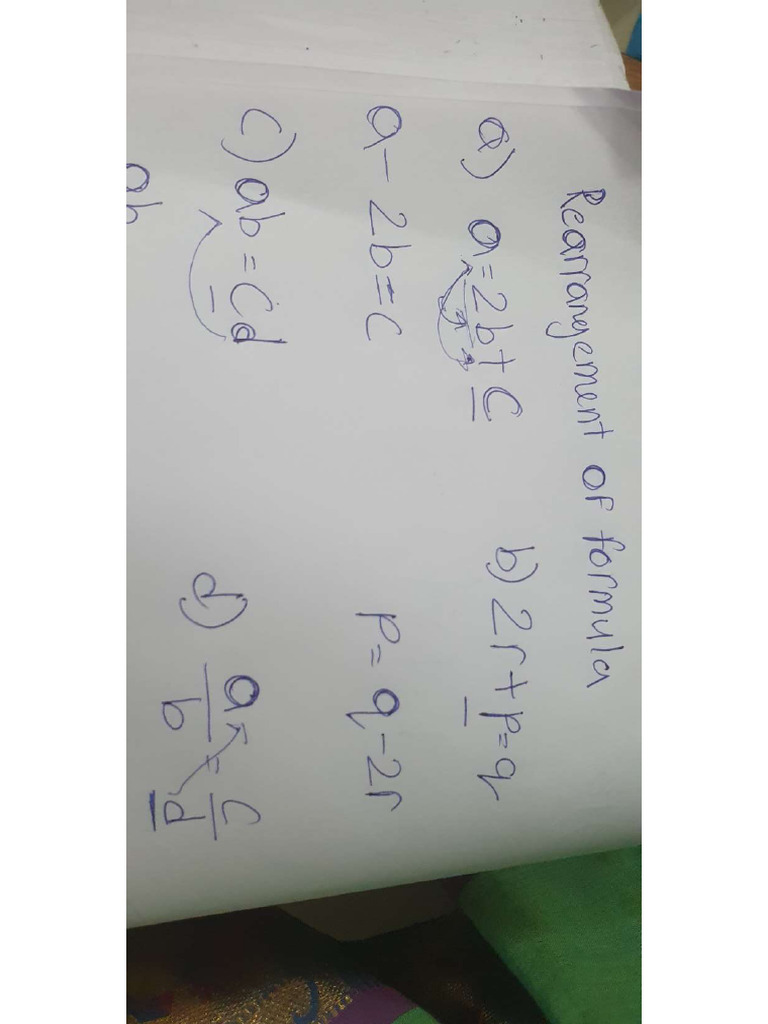 Rearrangement of formula
a) a = 2b + c
b) 2r + p = q
a - 2b = c
p = q - 2r
c) ab = cd
d) a/b = c/p
ab